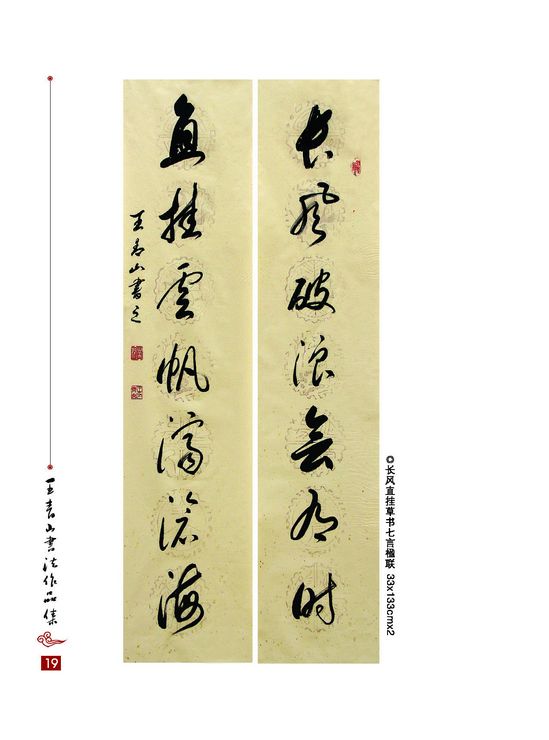 长风破浪会有时
直挂云帆济沧海
王青山书之
◎长风直挂草书七言楹联 33x133cmx2
王青山书法作品集
19